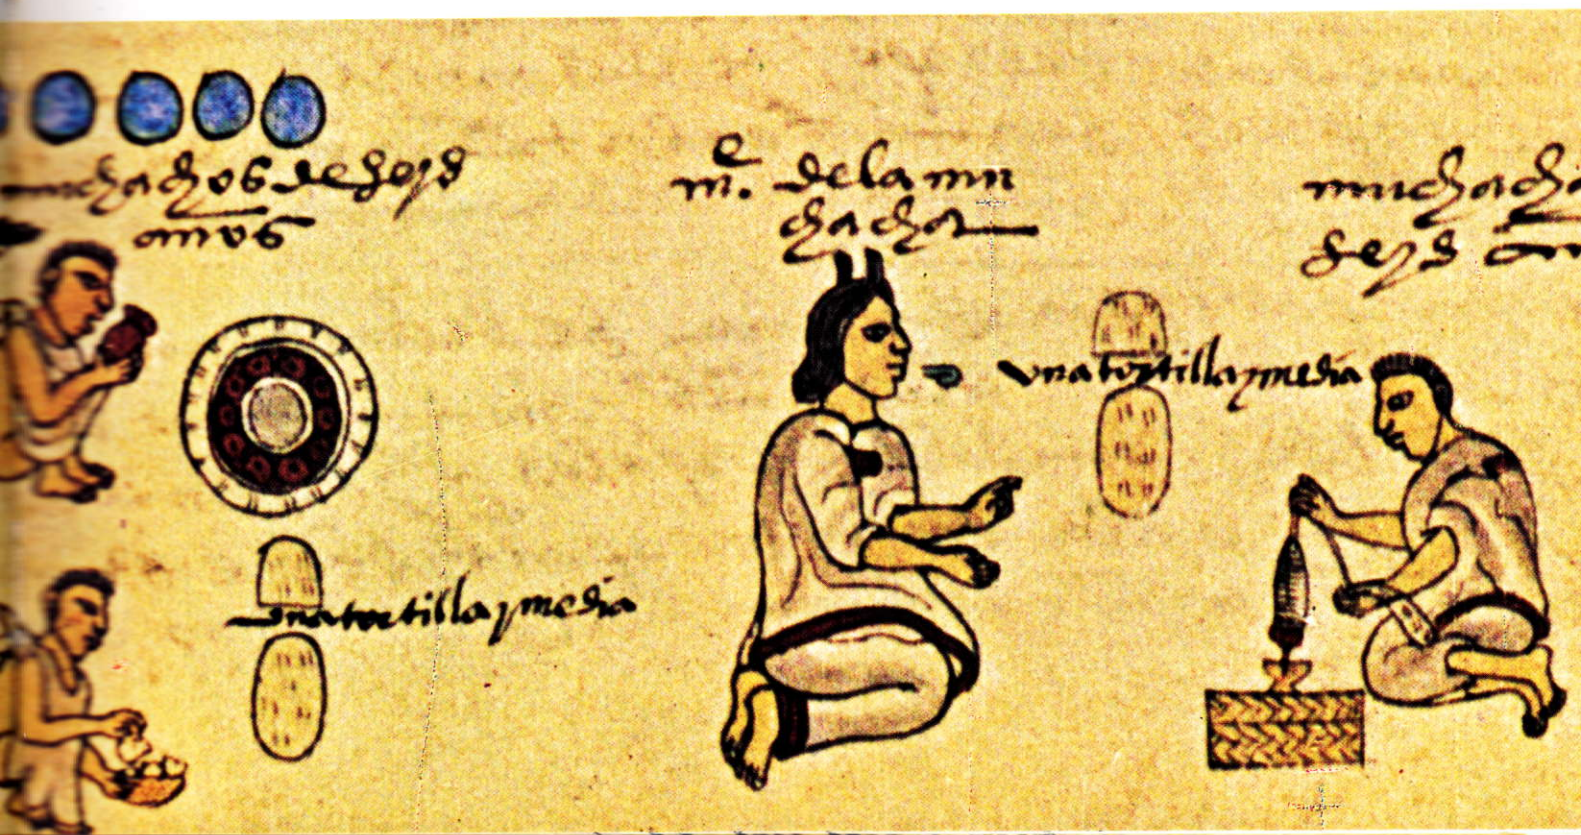 muchachos de seys
años
me. de la mu
chacha
muchacha
de seys añ
una tortilla y media
una tortilla y media